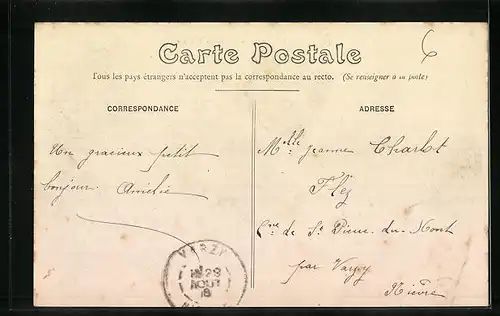 Carte Postale
6
Tous les pays étrangers n'acceptent pas la correspondance au recto. (Se renseigner à la poste)
CORRESPONDANCE
ADRESSE
Un gracieux petit
bonjour. Amélie
Melle Jeanne Charlot
Flez
Cne de St Pierre-du-Mont
par Varzy
Nièvre
VARZY
29
AOUT